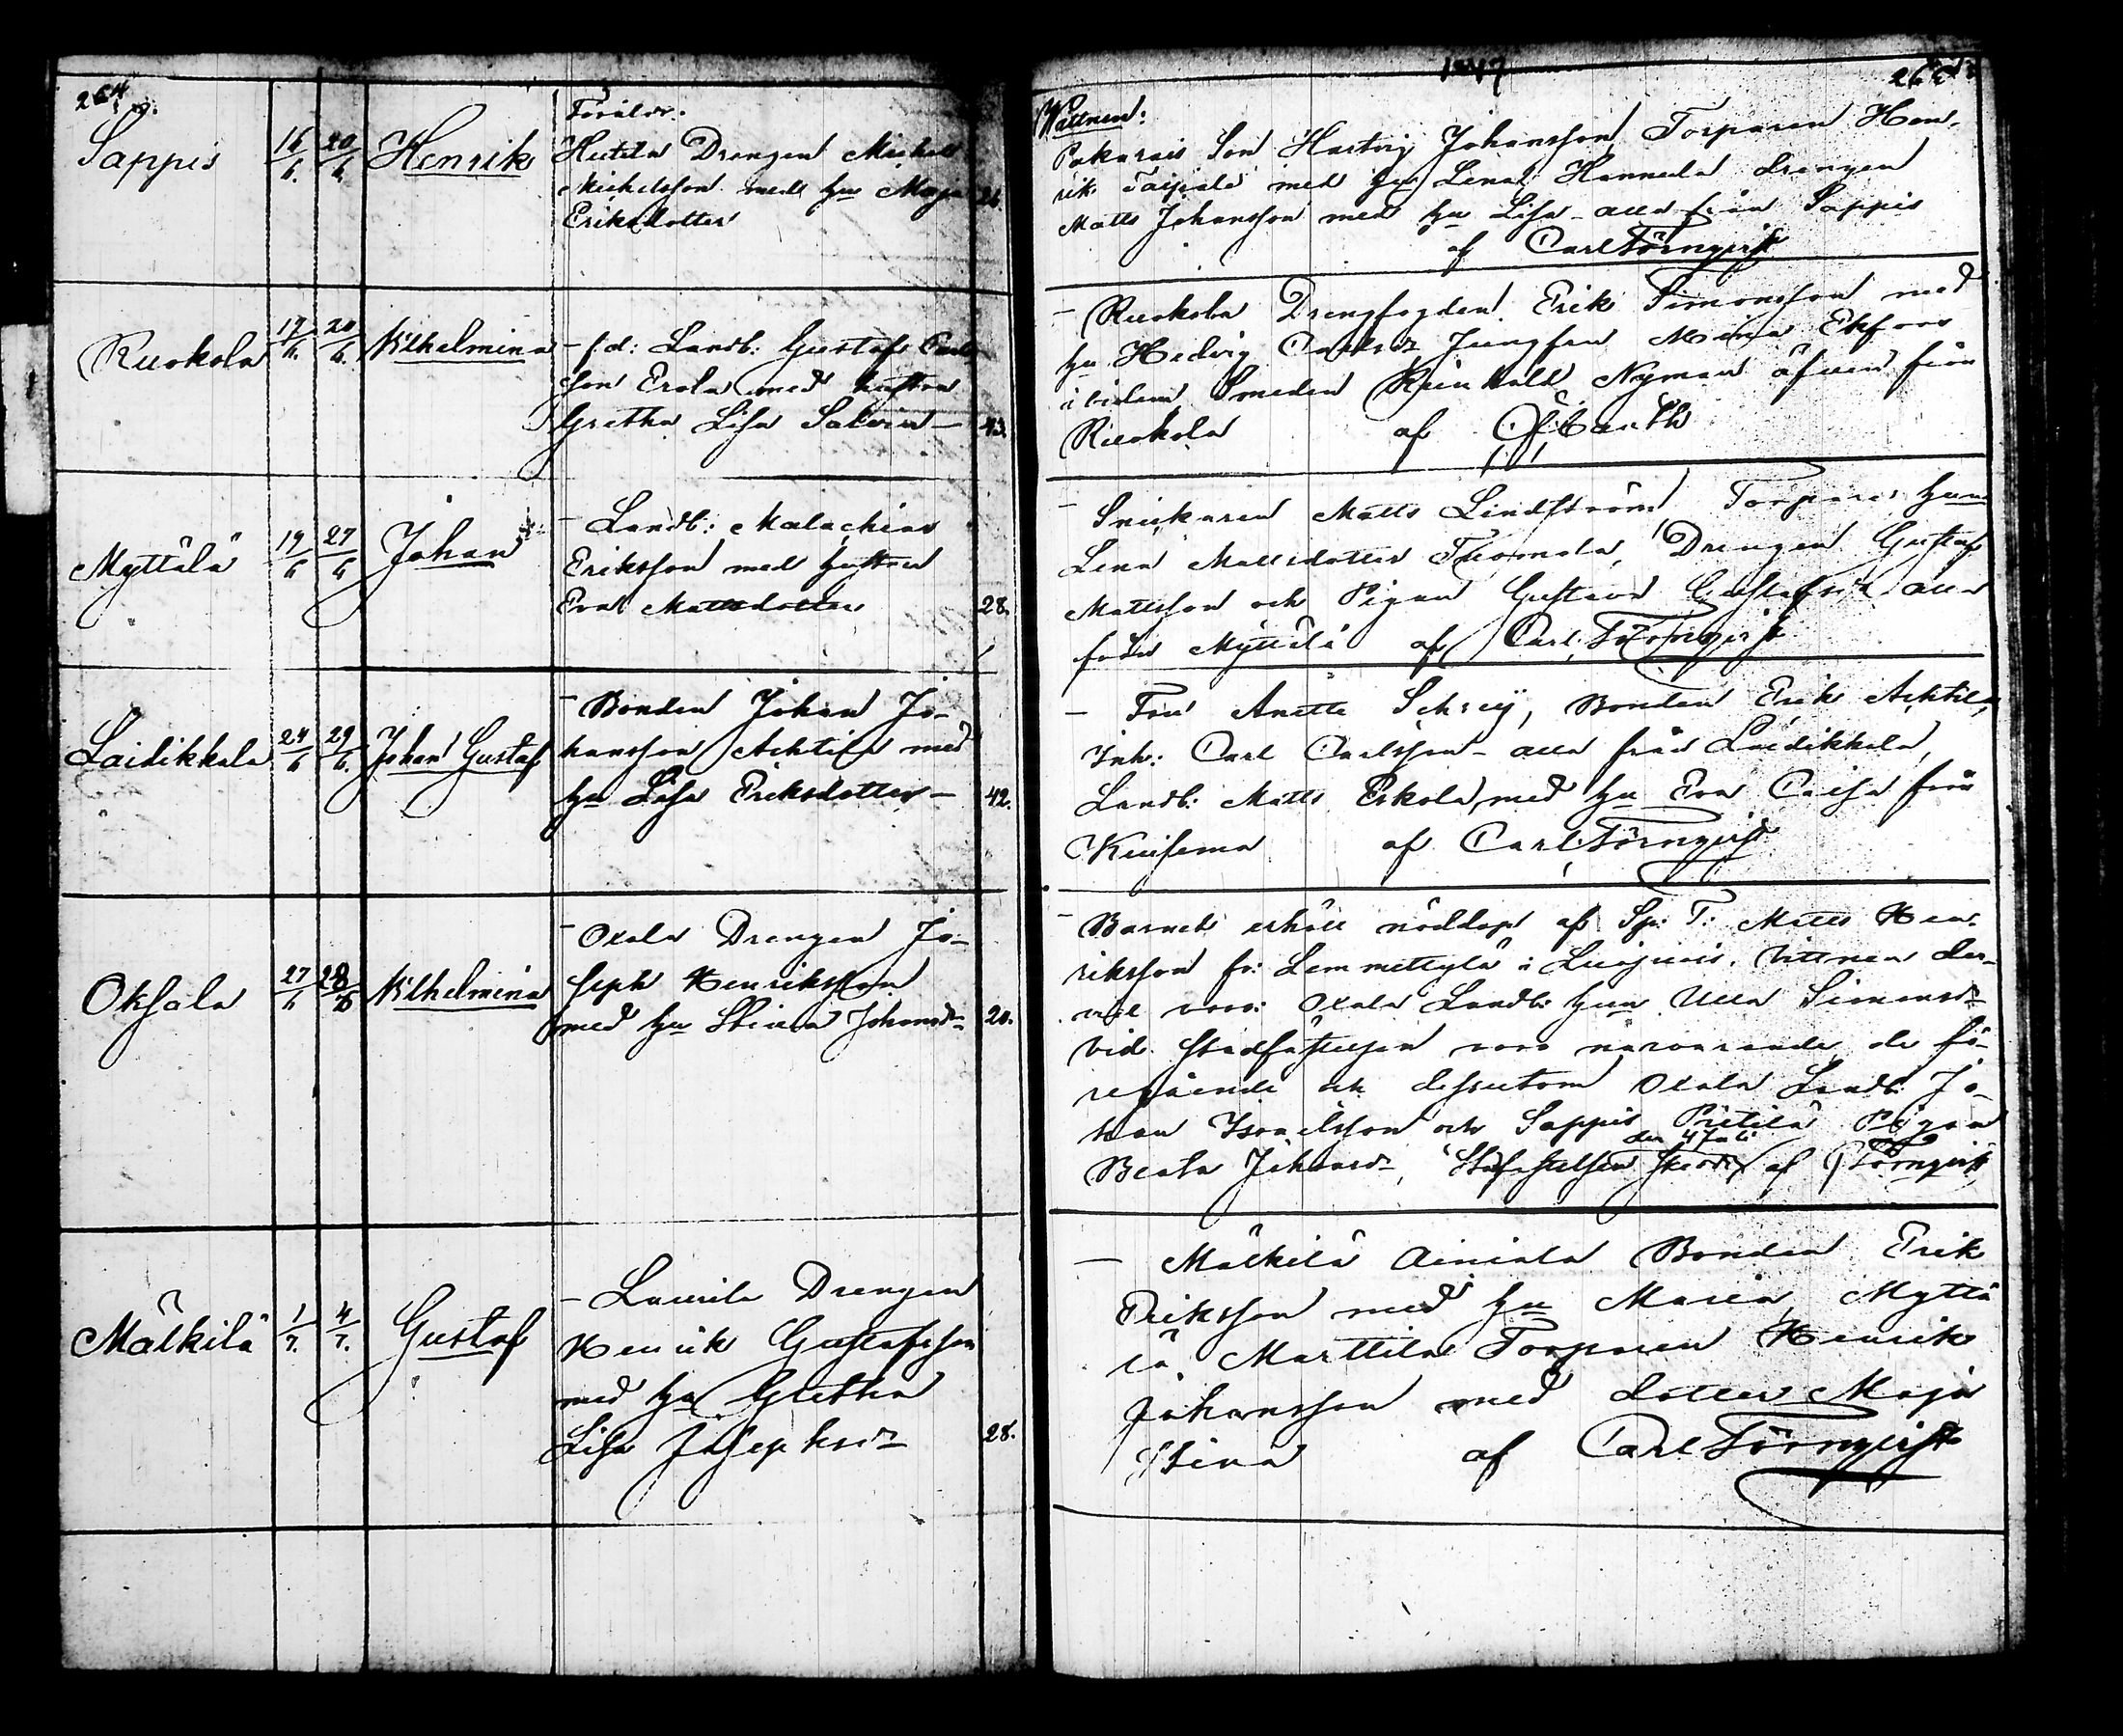 264
Föräldr:
Sappis 16/6. 20/6. Henrik Hutila Drengen Michel
Michelsson med hu Maja
Eriksdotter
Ruokola 17/6. 20/6. Wilhelmina – f.d: Landb: Gustaf Carls
son Erola med hustru
Gretha Lisa Salvin – 43.
Myttälä 19/6 27/6 Johan – Landb: Malachias
Eriksson med hustru
Eva Mattsdotter 28.
Laidikkala 24/6 29/6. Johan Gustaf – Bonden Johan Jo-
hansson Achtila med
hu Lisa Eriksdotter – 42.
Oksala 27/6 28/6 Wilhelmina – Oxala Drengen Jo-
seph Henriksson
med hu Stina Johansdr 20.
Mälkilä 1/7. 4/7. Gustaf – Laurila Drengen
Henrik Gustafsson
med hu Gretha
Lisa Josephsdr 28.
1847
Wittnen:
Pakarais Son Hartvig Johansson, Torparen Hen-
rik Taipale med hu Lena, Hannula drengen
Matts Johansson med hu Lisa – alla från Sappis
af Carl Törnqvist
– Ruokola Drengfogden Erik Simonsson med
hu Hedvig Carlsdr Jungfru Mina Ekfors
ibidem Smeden Reinhold Nyman äfven från
Ruokola af
– Snickaren Matts Lindström, Torpare hun
Lena Mattsdotter Tuomola, Drengen Gustaf
Mattsson och Pigan Gustava Gustafsdr alla
från Myttälä af Carl Törnqvist
– Fru Anette Schrey, Bonden Erik Achtila,
Inh: Carl Carlsson – alla från Laidikkala,
Landb: Matts Eskola med hu Eva Caisa från
Kuisema af Carl Törnqvist
– Barnet erhöll nöddop af Matts Hen-
riksson fr: Lemmettylä i Luojuis. Vittnen der-
vid voro: Oxala Landb: hun Ulla Simonsdr
Vid stadfästelsen voro närvarande de fö-
regående och dessutom Oxala Landb: Jo-
han Israelsson och Sappis Prittilä Pigan
den 4 Juli
Beata Johansdr, Stadfästelsen skedde af CTörnqvist
– Mälkilä Ainiala Bonden Erik
Eriksson med hu Maria, Myttä
lä Marttila Torparen Henrik
Johansson med dotter Maja
Stina af Carl Törnqvist